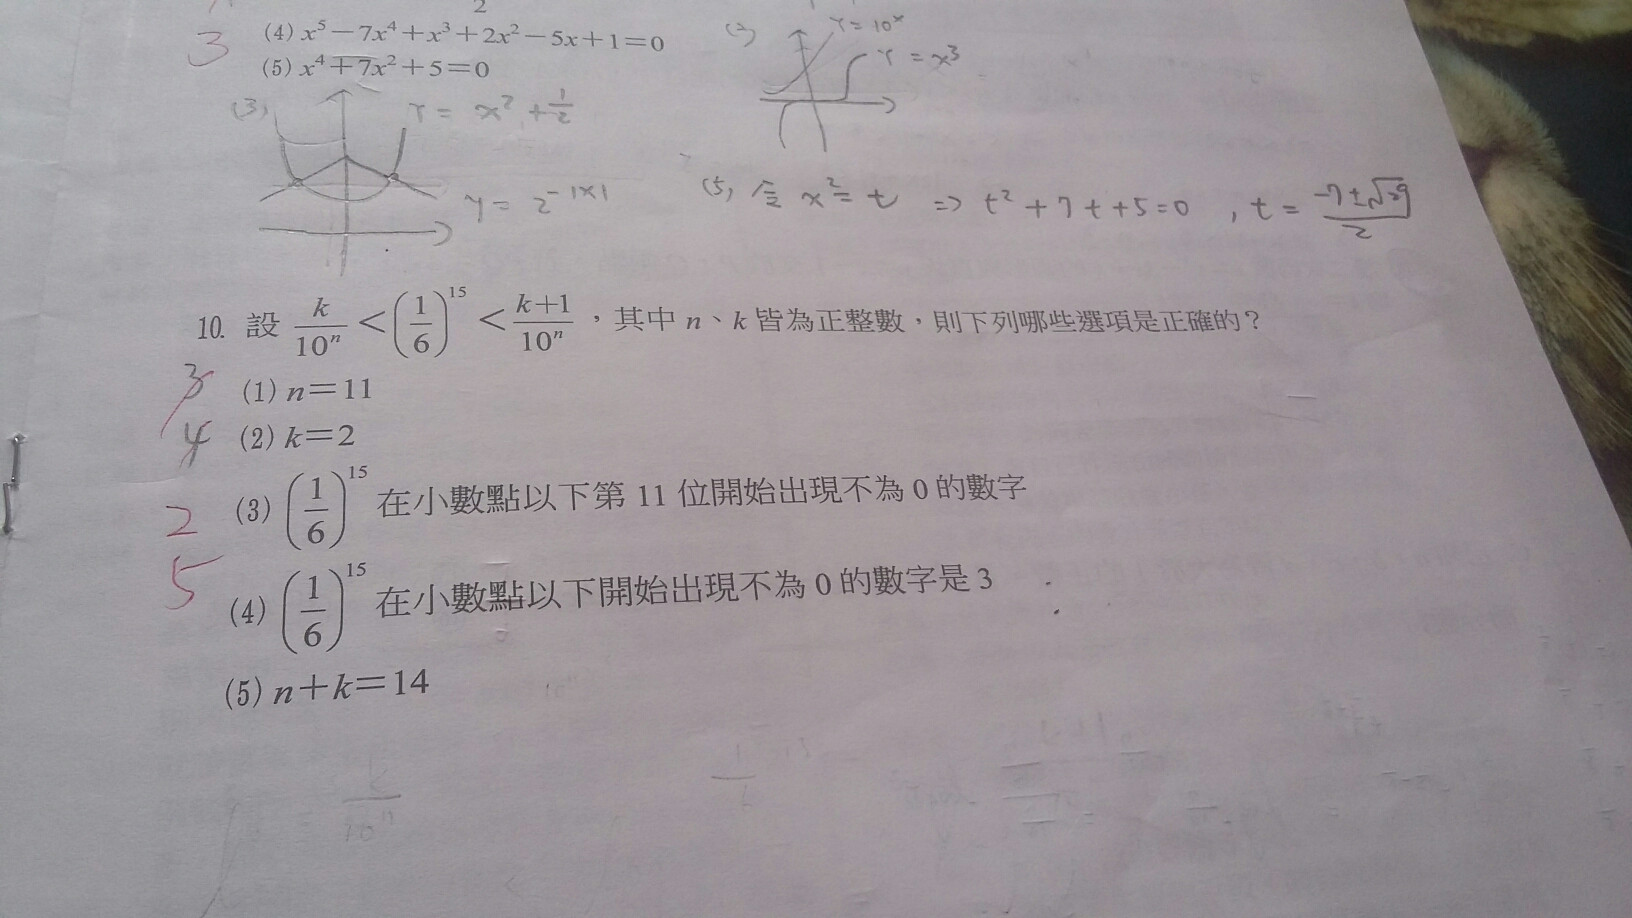 2
(4) x⁵－7x⁴＋x³＋2x²－5x＋1＝0
3
(5) x⁴＋7x²＋5＝0
Y = 10ˣ
Y = x³
(3)
Y = x² + 1/2
y = 2^-|x|
(5) 令 x² = t => t² + 7t + 5 = 0 , t = (-7±√29)/2
10. 設 k/10ⁿ ＜ (1/6)¹⁵ ＜ (k+1)/10ⁿ ，其中 n、k 皆為正整數，則下列哪些選項是正確的？
3
(1) n＝11
4
(2) k＝2
2
(3) (1/6)¹⁵ 在小數點以下第 11 位開始出現不為 0 的數字
5
(4) (1/6)¹⁵ 在小數點以下開始出現不為 0 的數字是 3
(5) n＋k＝14
k/10ⁿ